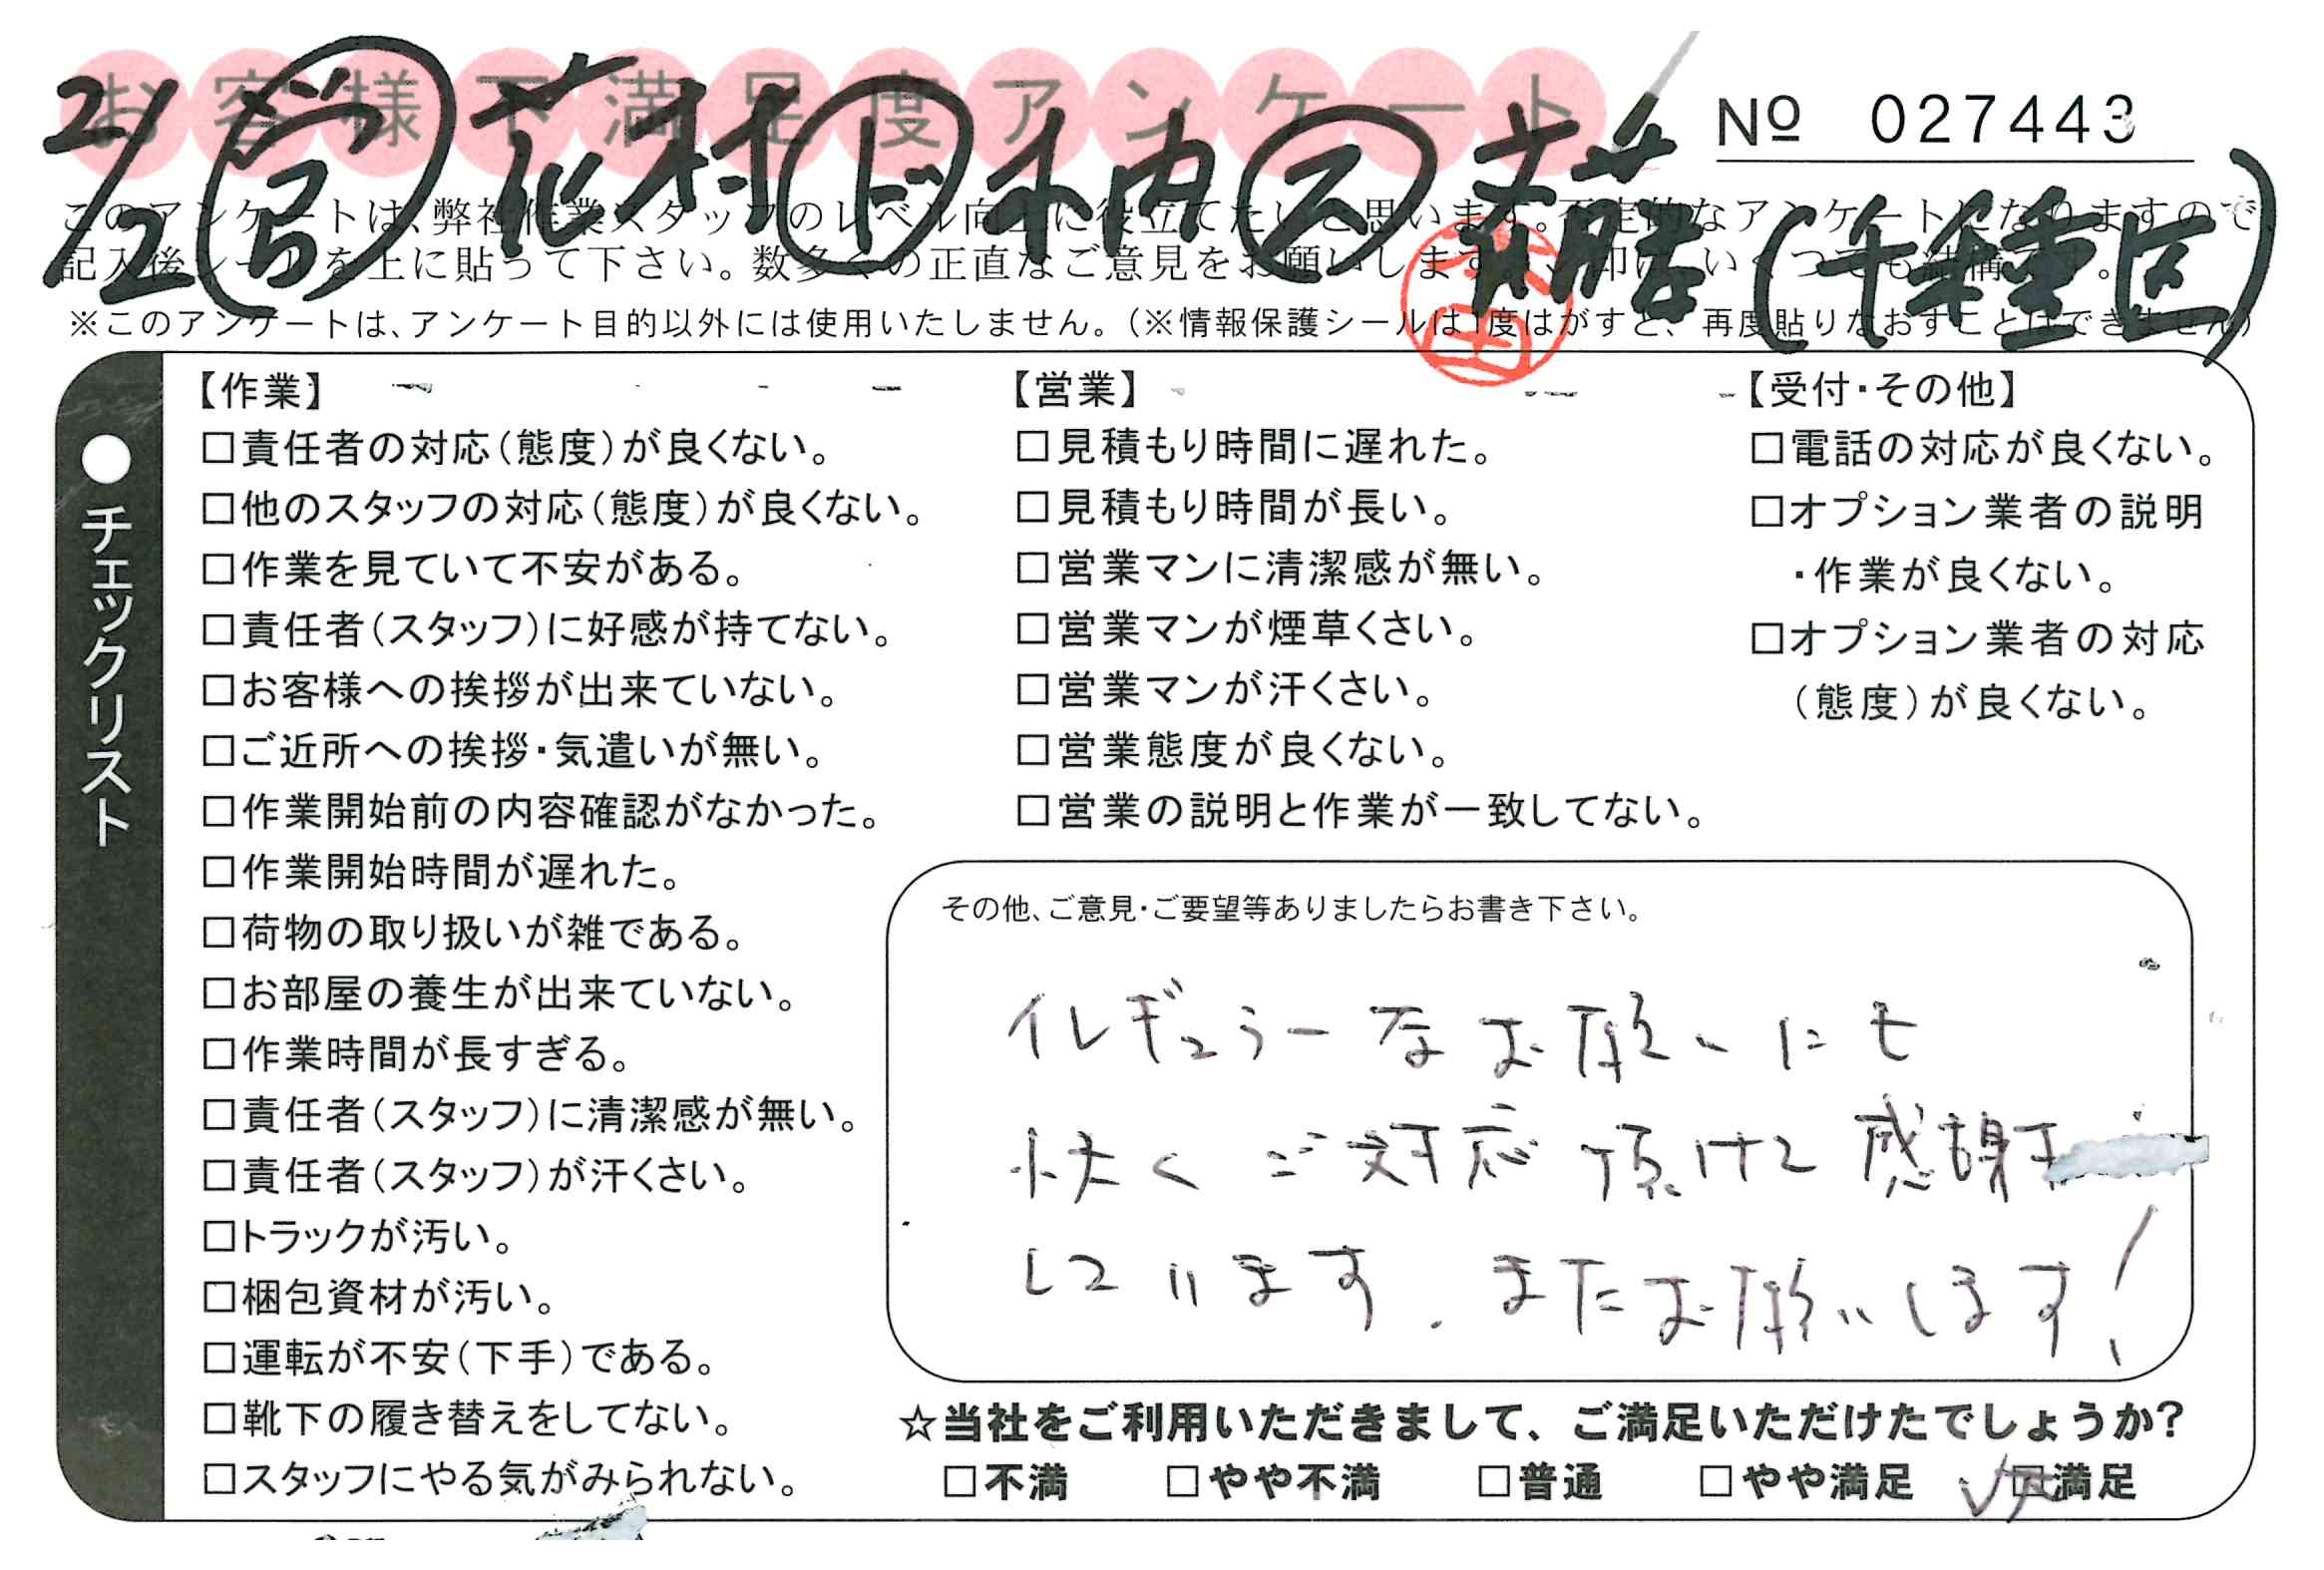 お客様不満足度アンケート
№ 027443
2/2 営 花村 ド 木内 ス 斉藤 (千種区)
このアンケートは、弊社作業スタッフのレベル向上に役立てたいと思います。否定的なアンケートになりますので、
記入後シールを上に貼って下さい。数多くの正直なご意見をお願いします。レ印はいくつでも結構です。
※このアンケートは、アンケート目的以外には使用いたしません。(※情報保護シールは1度はがすと、再度貼りなおすことはできません)
●チェックリスト
【作業】
□責任者の対応(態度)が良くない。
□他のスタッフの対応(態度)が良くない。
□作業を見ていて不安がある。
□責任者(スタッフ)に好感が持てない。
□お客様への挨拶が出来ていない。
□ご近所への挨拶・気遣いが無い。
□作業開始前の内容確認がなかった。
□作業開始時間が遅れた。
□荷物の取り扱いが雑である。
□お部屋の養生が出来ていない。
□作業時間が長すぎる。
□責任者(スタッフ)に清潔感が無い。
□責任者(スタッフ)が汗くさい。
□トラックが汚い。
□梱包資材が汚い。
□運転が不安(下手)である。
□靴下の履き替えをしてない。
□スタッフにやる気がみられない。
【営業】
□見積もり時間に遅れた。
□見積もり時間が長い。
□営業マンに清潔感が無い。
□営業マンが煙草くさい。
□営業マンが汗くさい。
□営業態度が良くない。
□営業の説明と作業が一致してない。
【受付・その他】
□電話の対応が良くない。
□オプション業者の説明
・作業が良くない。
□オプション業者の対応
(態度)が良くない。
その他、ご意見・ご要望等ありましたらお書き下さい。
イレギュラーなお願いにも
快くご対応頂けて感謝
しています。またお願いします!
☆当社をご利用いただきまして、ご満足いただけたでしょうか?
□不満 □やや不満 □普通 □やや満足 ☑満足